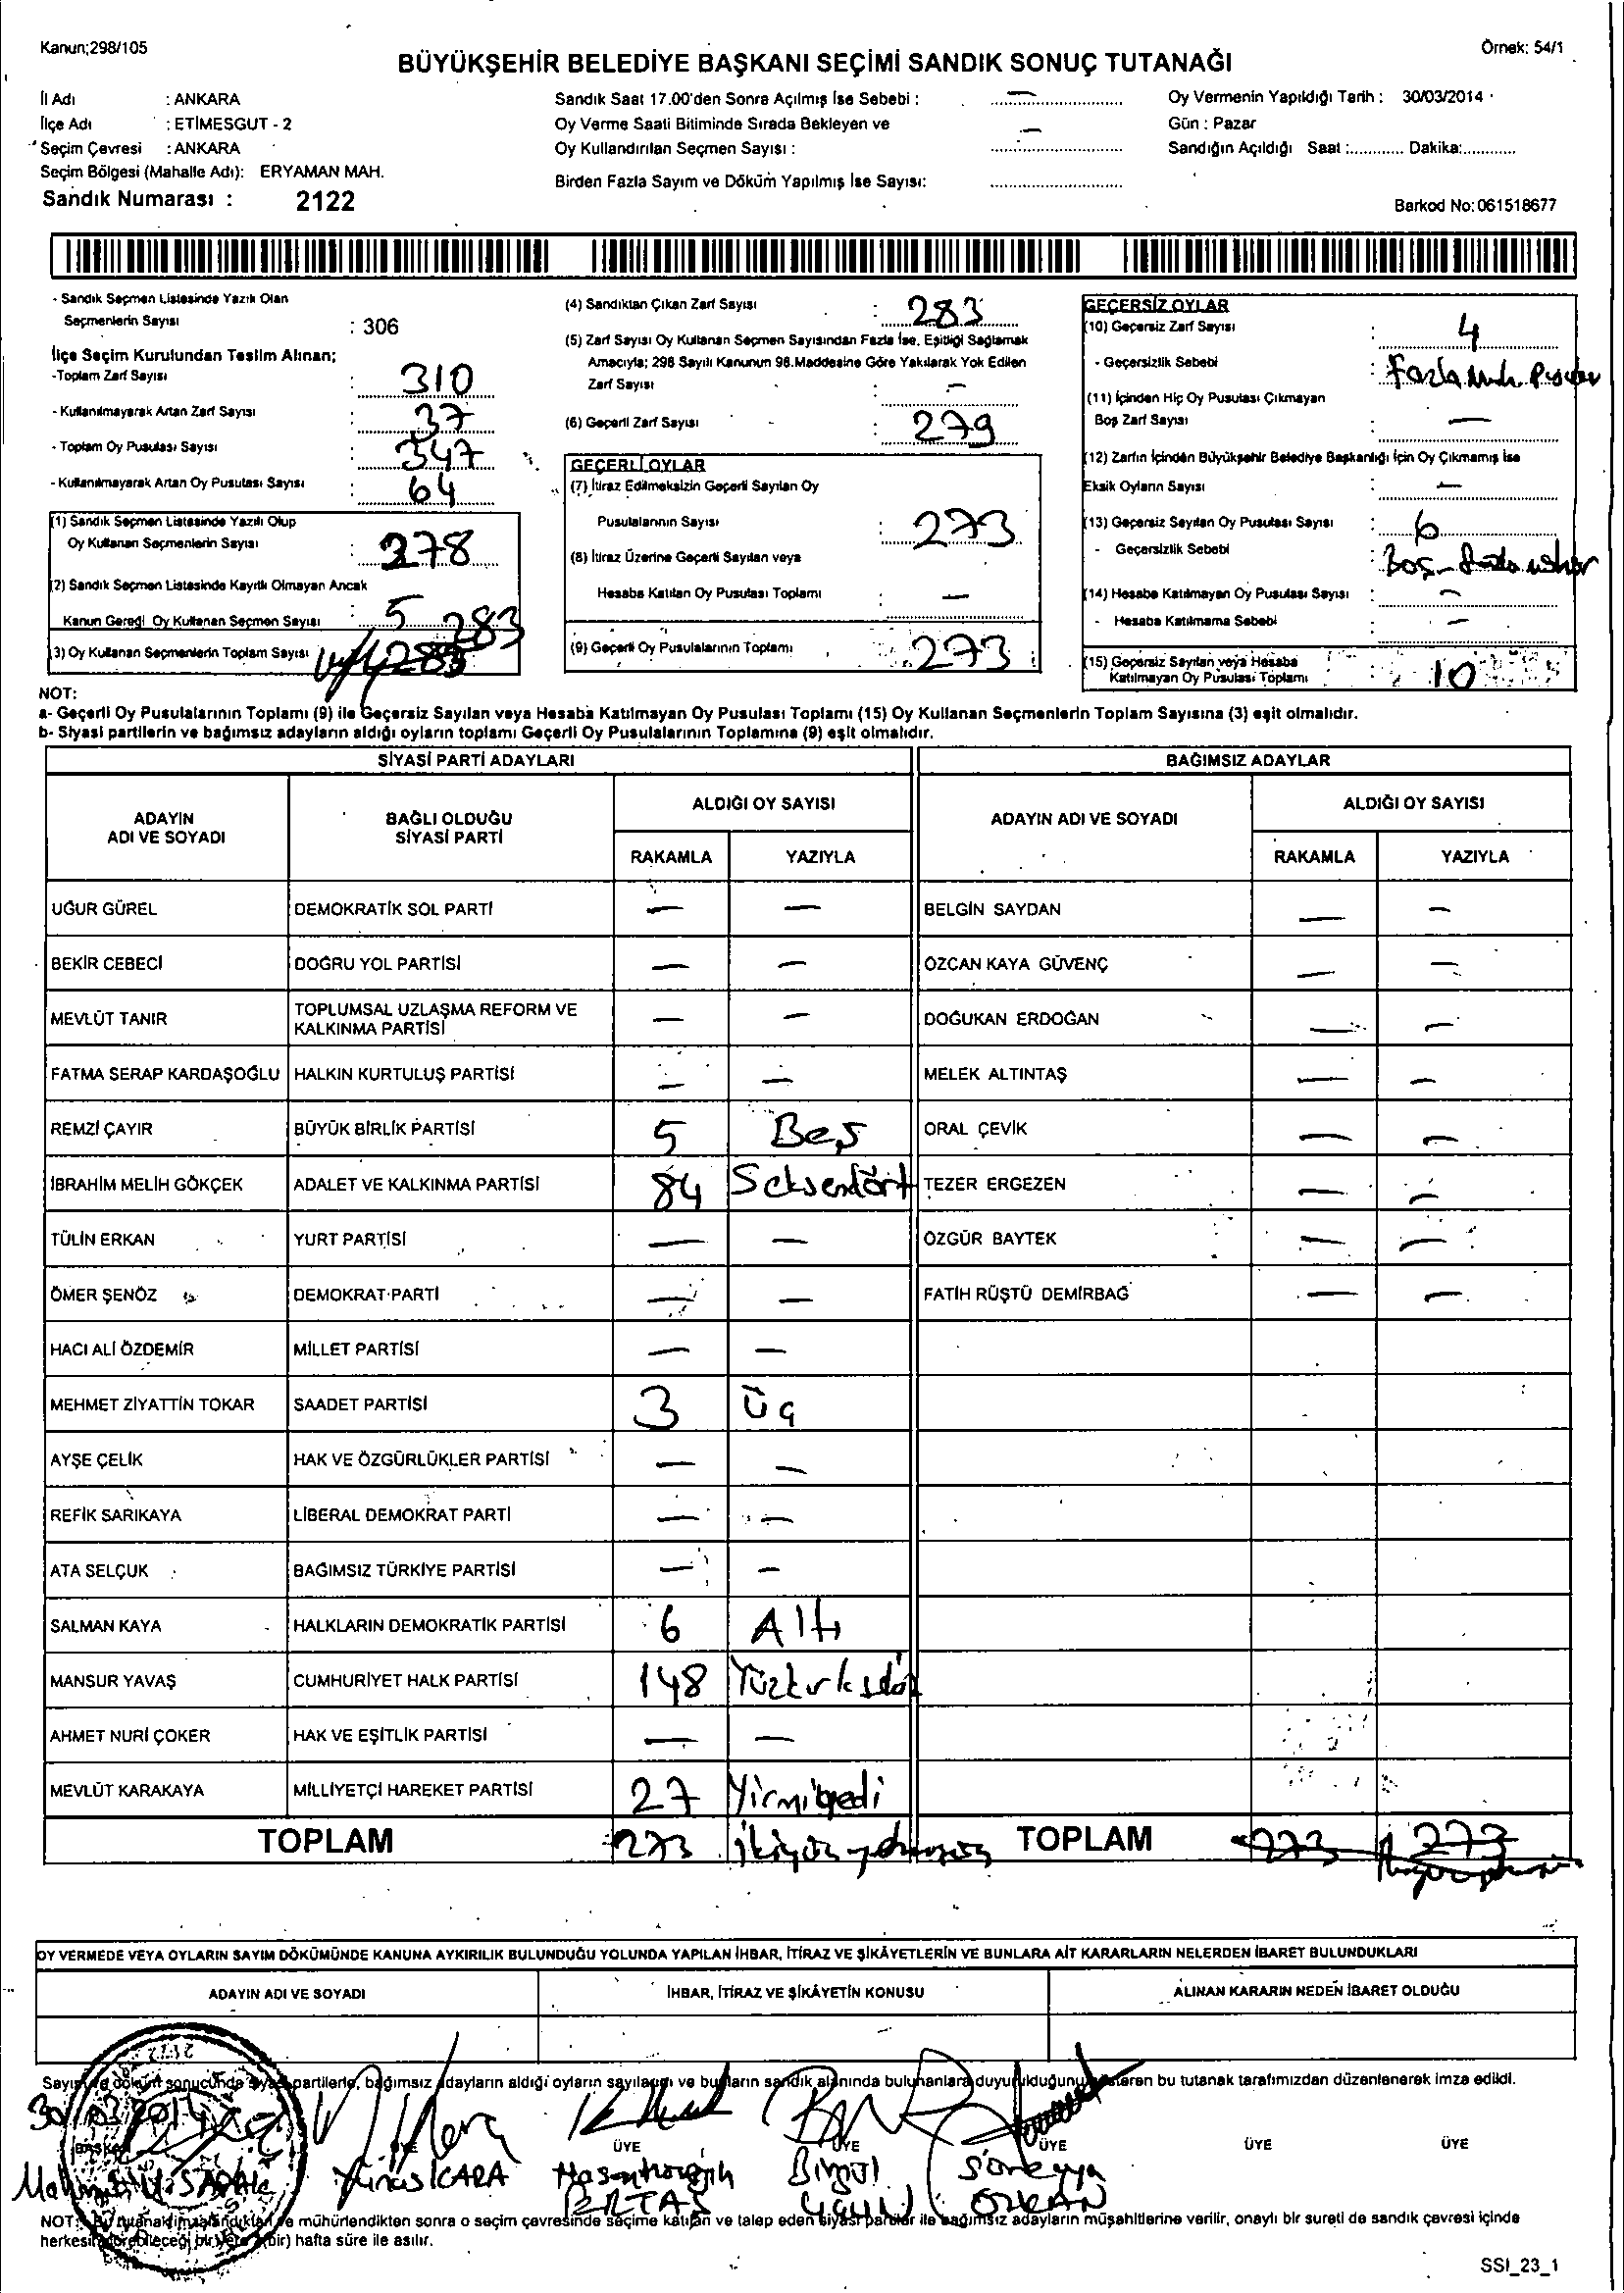 Kanun;298/105
Örnek: 54/1
BÜYÜKŞEHİR BELEDİYE BAŞKANI SEÇİMİ SANDIK SONUÇ TUTANAĞI
İl Adı : ANKARA
İlçe Adı : ETİMESGUT - 2
Seçim Çevresi : ANKARA
Seçim Bölgesi (Mahalle Adı): ERYAMAN MAH.
Sandık Numarası : 2122
Sandık Saat 17.00'den Sonra Açılmış İse Sebebi : —
Oy Verme Saati Bitiminde Sırada Bekleyen ve
Oy Kullandırılan Seçmen Sayısı : —
Birden Fazla Sayım ve Döküm Yapılmış İse Sayısı:
Oy Vermenin Yapıldığı Tarih : 30/03/2014
Gün : Pazar
Sandığın Açıldığı Saat :............ Dakika:............
Barkod No:061518677
- Sandık Seçmen Listesinde Yazılı Olan
Seçmenlerin Sayısı : 306
İlçe Seçim Kurulundan Teslim Alınan;
-Toplam Zarf Sayısı : 310
- Kullanılmayarak Artan Zarf Sayısı : 37
- Toplam Oy Pusulası Sayısı : 347
- Kullanılmayarak Artan Oy Pusulası Sayısı : 64
(1) Sandık Seçmen Listesinde Yazılı Olup
Oy Kullanan Seçmenlerin Sayısı : 278
(2) Sandık Seçmen Listesinde Kayıtlı Olmayan Ancak
Kanun Gereği Oy Kullanan Seçmen Sayısı : 5
283
(3) Oy Kullanan Seçmenlerin Toplam Sayısı
(4) Sandıktan Çıkan Zarf Sayısı : 283
(5) Zarf Sayısı Oy Kullanan Seçmen Sayısından Fazla İse, Eşitliği Sağlamak
Amacıyla; 298 Sayılı Kanunun 98.Maddesine Göre Yakılarak Yok Edilen
Zarf Sayısı : —
(6) Geçerli Zarf Sayısı : 279
GEÇERLİ OYLAR
(7) İtiraz Edilmeksizin Geçerli Sayılan Oy
Pusulalarının Sayısı : 273
(8) İtiraz Üzerine Geçerli Sayılan veya
Hesaba Katılan Oy Pusulası Toplamı : —
(9) Geçerli Oy Pusulalarının Toplamı : 273
GEÇERSİZ OYLAR
(10) Geçersiz Zarf Sayısı : 4
- Geçersizlik Sebebi : Fazla
(11) İçinden Hiç Oy Pusulası Çıkmayan
Boş Zarf Sayısı : —
(12) Zarfın İçinden Büyükşehir Belediye Başkanlığı İçin Oy Çıkmamış İse
Eksik Oyların Sayısı : —
(13) Geçersiz Sayılan Oy Pusulası Sayısı : 6
- Geçersizlik Sebebi : Boş -
(14) Hesaba Katılmayan Oy Pusulası Sayısı : —
- Hesaba Katılmama Sebebi : —
(15) Geçersiz Sayılan veya Hesaba
Katılmayan Oy Pusulası Toplamı : 10
NOT:
a- Geçerli Oy Pusulalarının Toplamı (9) ile Geçersiz Sayılan veya Hesaba Katılmayan Oy Pusulası Toplamı (15) Oy Kullanan Seçmenlerin Toplam Sayısına (3) eşit olmalıdır.
b- Siyasi partilerin ve bağımsız adayların aldığı oyların toplamı Geçerli Oy Pusulalarının Toplamına (9) eşit olmalıdır.
SİYASİ PARTİ ADAYLARI
BAĞIMSIZ ADAYLAR
ADAYIN ADI VE SOYADI
BAĞLI OLDUĞU SİYASİ PARTİ
ALDIĞI OY SAYISI
RAKAMLA YAZIYLA
ADAYIN ADI VE SOYADI
ALDIĞI OY SAYISI
RAKAMLA YAZIYLA
UĞUR GÜREL DEMOKRATİK SOL PARTİ — — BELGİN SAYDAN — —
BEKİR CEBECİ DOĞRU YOL PARTİSİ — — ÖZCAN KAYA GÜVENÇ — —
MEVLÜT TANIR TOPLUMSAL UZLAŞMA REFORM VE KALKINMA PARTİSİ — — DOĞUKAN ERDOĞAN — —
FATMA SERAP KARDAŞOĞLU HALKIN KURTULUŞ PARTİSİ — — MELEK ALTINTAŞ — —
REMZİ ÇAYIR BÜYÜK BİRLİK PARTİSİ 5 Beş ORAL ÇEVİK — —
İBRAHİM MELİH GÖKÇEK ADALET VE KALKINMA PARTİSİ 84 Seksendört TEZER ERGEZEN — —
TÜLİN ERKAN YURT PARTİSİ — — ÖZGÜR BAYTEK — —
ÖMER ŞENÖZ DEMOKRAT PARTİ — — FATİH RÜŞTÜ DEMİRBAĞ — —
HACI ALİ ÖZDEMİR MİLLET PARTİSİ — —
MEHMET ZİYATTİN TOKAR SAADET PARTİSİ 3 Üç
AYŞE ÇELİK HAK VE ÖZGÜRLÜKLER PARTİSİ — —
REFİK SARIKAYA LİBERAL DEMOKRAT PARTİ — —
ATA SELÇUK BAĞIMSIZ TÜRKİYE PARTİSİ — —
SALMAN KAYA HALKLARIN DEMOKRATİK PARTİSİ 6 Altı
MANSUR YAVAŞ CUMHURİYET HALK PARTİSİ 148
AHMET NURİ ÇOKER HAK VE EŞİTLİK PARTİSİ — —
MEVLÜT KARAKAYA MİLLİYETÇİ HAREKET PARTİSİ 27 Yirmiyedi
TOPLAM 273 TOPLAM 273 273
OY VERMEDE VEYA OYLARIN SAYIM DÖKÜMÜNDE KANUNA AYKIRILIK BULUNDUĞU YOLUNDA YAPILAN İHBAR, İTİRAZ VE ŞİKÂYETLERİN VE BUNLARA AİT KARARLARIN NELERDEN İBARET BULUNDUKLARI
ADAYIN ADI VE SOYADI İHBAR, İTİRAZ VE ŞİKÂYETİN KONUSU ALINAN KARARIN NEDEN İBARET OLDUĞU
Sayım ve döküm sonucunda siyasi partilerle, bağımsız adayların aldığı oyların sayılarını ve bunların sandık alanında bulunanlara duyurulduğunu gösteren bu tutanak tarafımızdan düzenlenerek imza edildi.
30/03/2014
BAŞKAN ÜYE ÜYE ÜYE ÜYE ÜYE ÜYE
Yunus KARA
ERTAŞ
ÖZKAN
NOT: Bu tutanak imzalandıktan ve mühürlendikten sonra o seçim çevresinde seçime katılan ve talep eden siyasi partiler ile bağımsız adayların müşahitlerine verilir, onaylı bir sureti de sandık çevresi içinde
herkesin görebileceği bir yere (bir) hafta süre ile asılır.
SSI_23_1